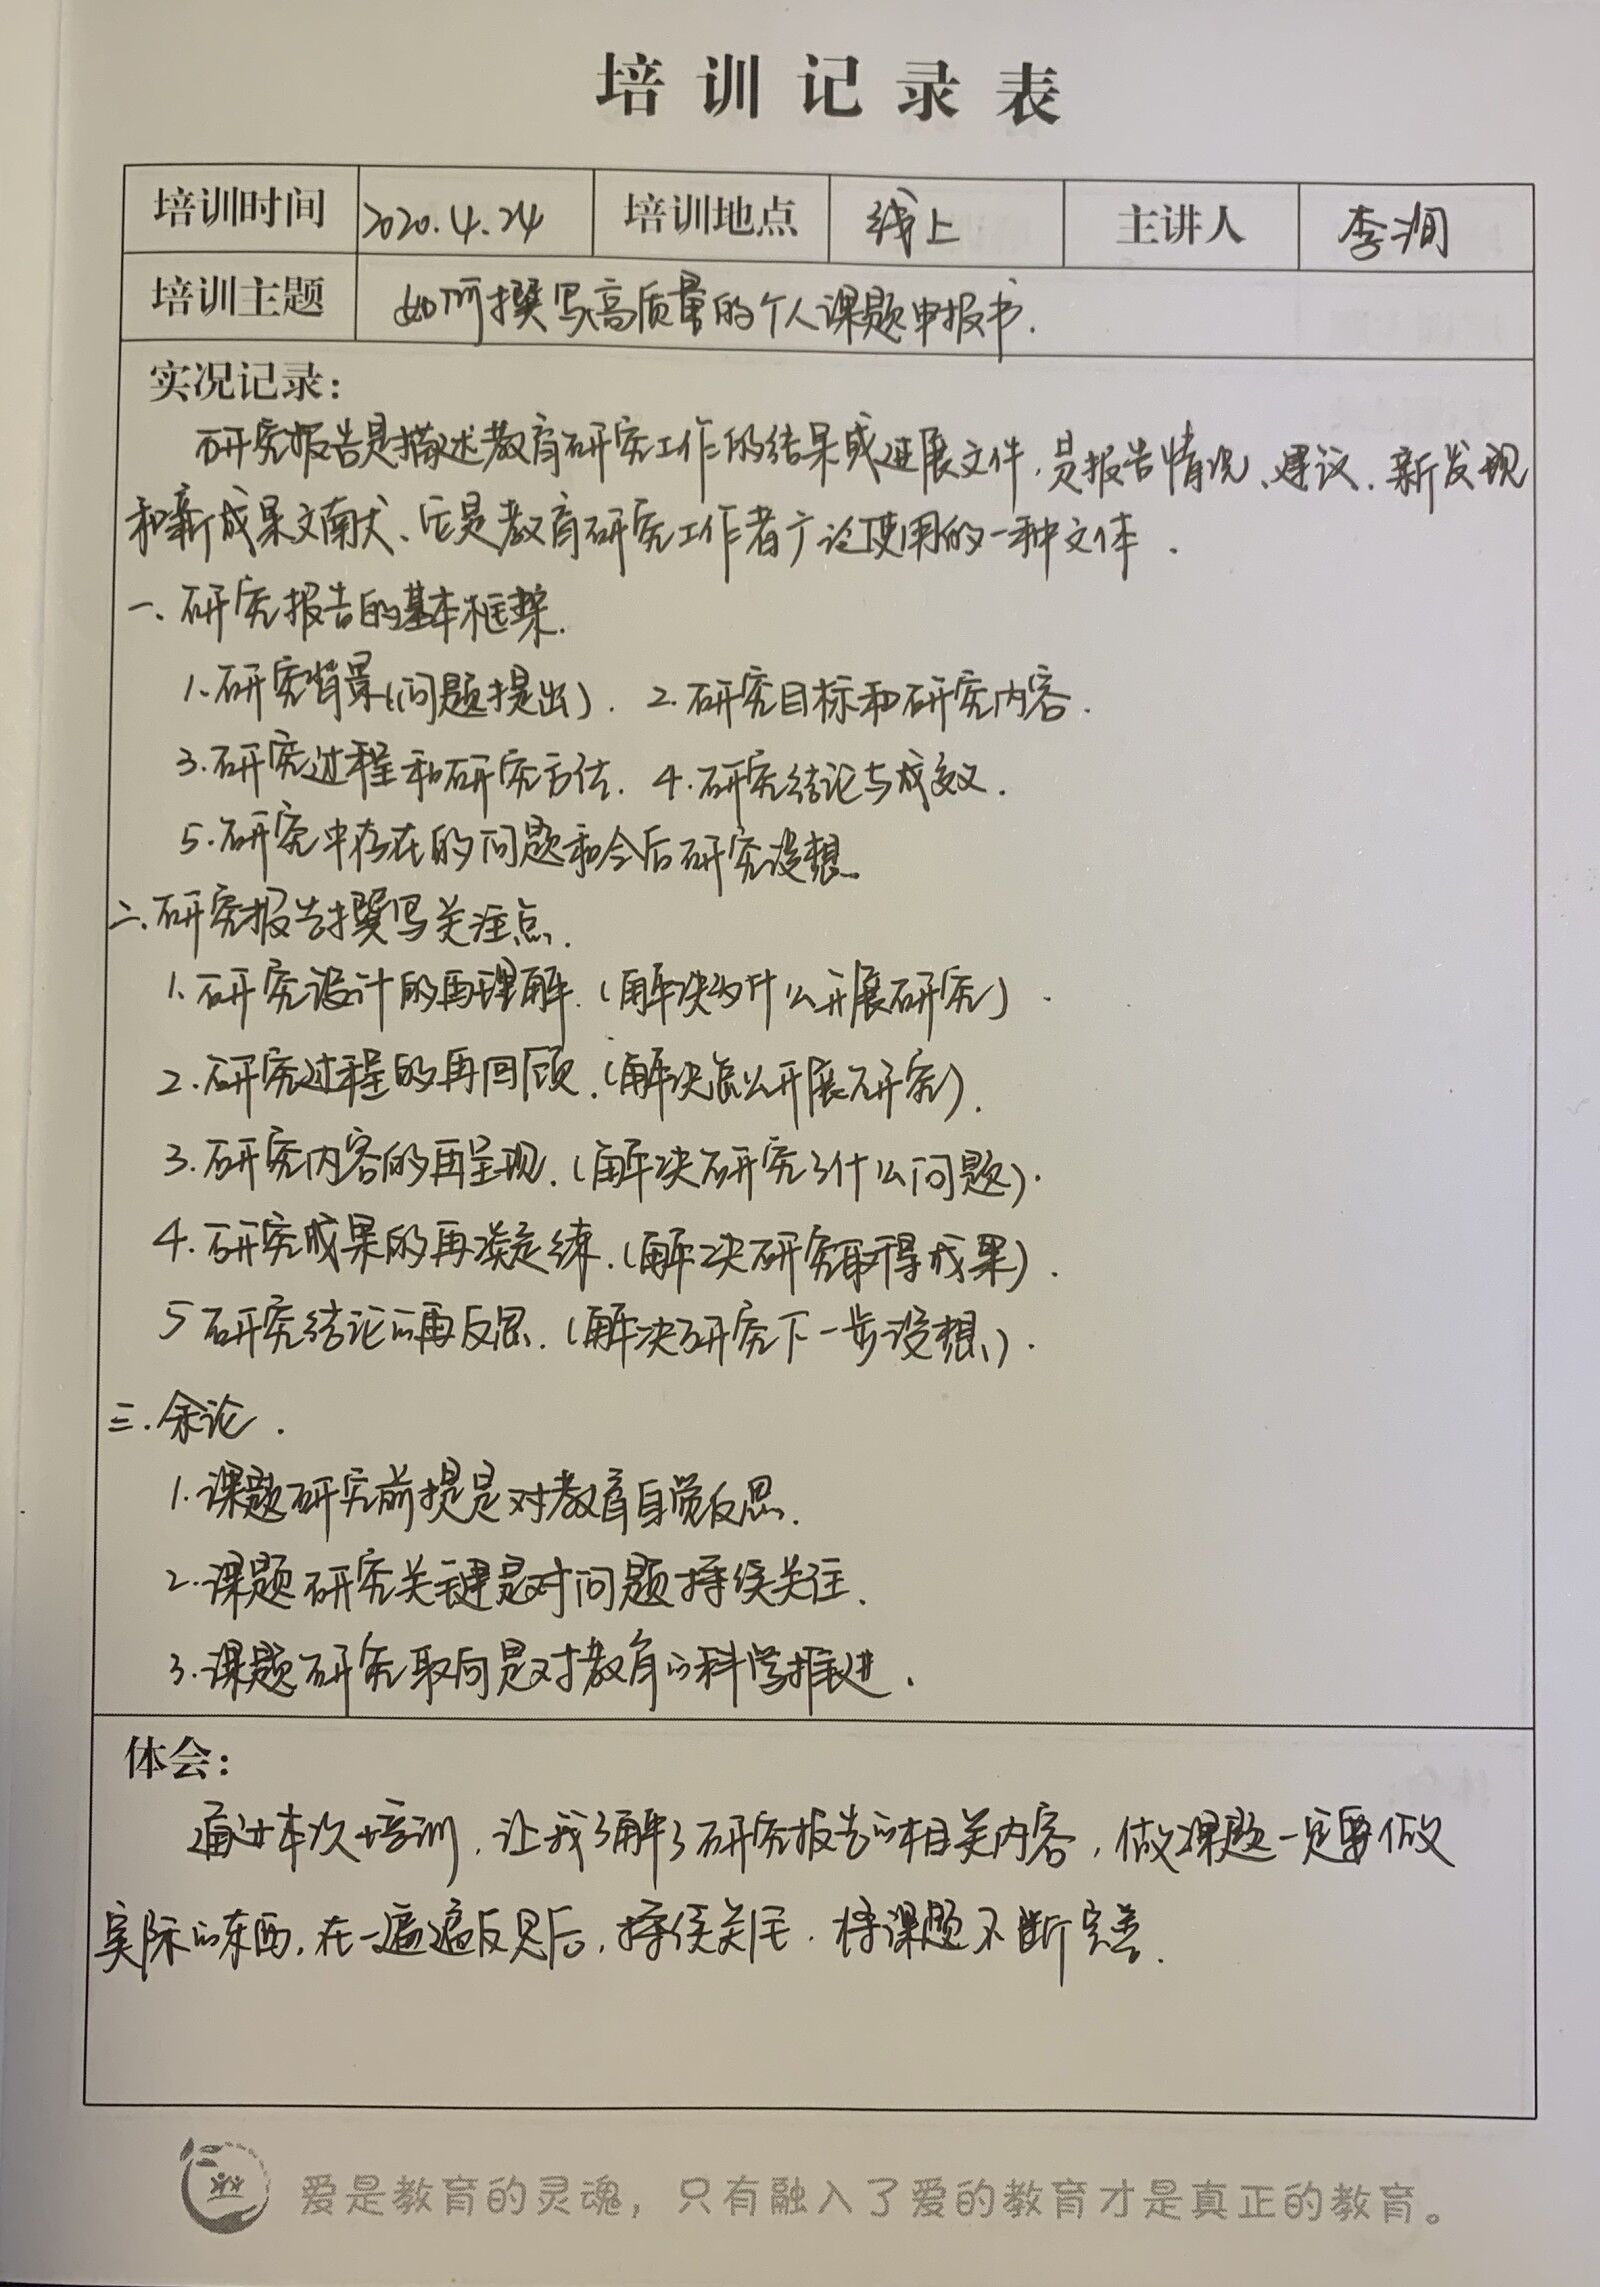 培训记录表
培训时间 2020.4.24 培训地点 线上 主讲人 李涧
培训主题 如何撰写高质量的个人课题申报书.
实况记录:
研究报告是描述教育研究工作的结果或进展文件,是报告情况、建议、新发现
和新成果文献、它是教育研究工作者广泛使用的一种文体.
一、研究报告的基本框架.
1.研究背景(问题提出). 2.研究目标和研究内容.
3.研究过程和研究方法. 4.研究结论与成效.
5.研究中存在的问题和今后研究设想.
二.研究报告撰写关注点.
1.研究设计的再理解.(解决为什么开展研究).
2.研究过程的再回顾.(解决怎么开展研究).
3.研究内容的再呈现.(解决研究了什么问题).
4.研究成果的再凝练.(解决研究取得成果).
5 研究结论的再反思.(解决研究下一步设想).
三.余论.
1.课题研究前提是对教育自觉反思.
2.课题研究关键是对问题持续关注.
3.课题研究取向是对教育的科学推进.
体会:
通过本次培训,让我了解了研究报告的相关内容,做课题一定要做
实际的东西,在一遍遍反思后,持续关注.将课题不断完善.
爱是教育的灵魂，只有融入了爱的教育才是真正的教育。